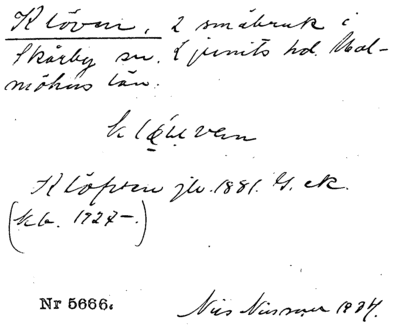 Klöven, 2 småbruk i
Skårby sn. Ljunits hd. Mal-
möhus län.
Klöpven jb. 1881. G. ek.
(kb. 1927-.)
Nr 5666.
Nils 1934.